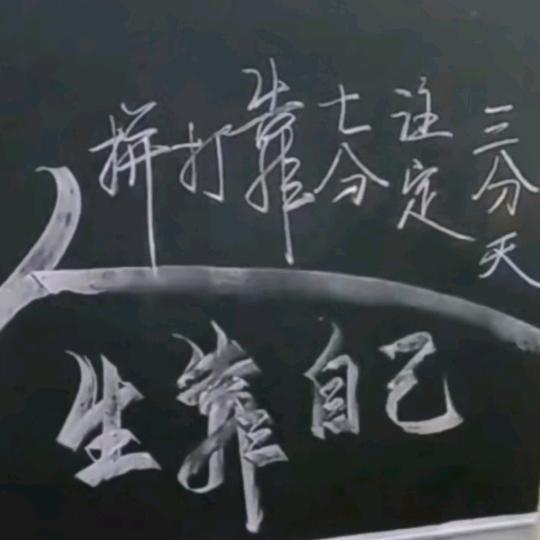 三分天
註定
七分
靠
打
拼
人生靠自己